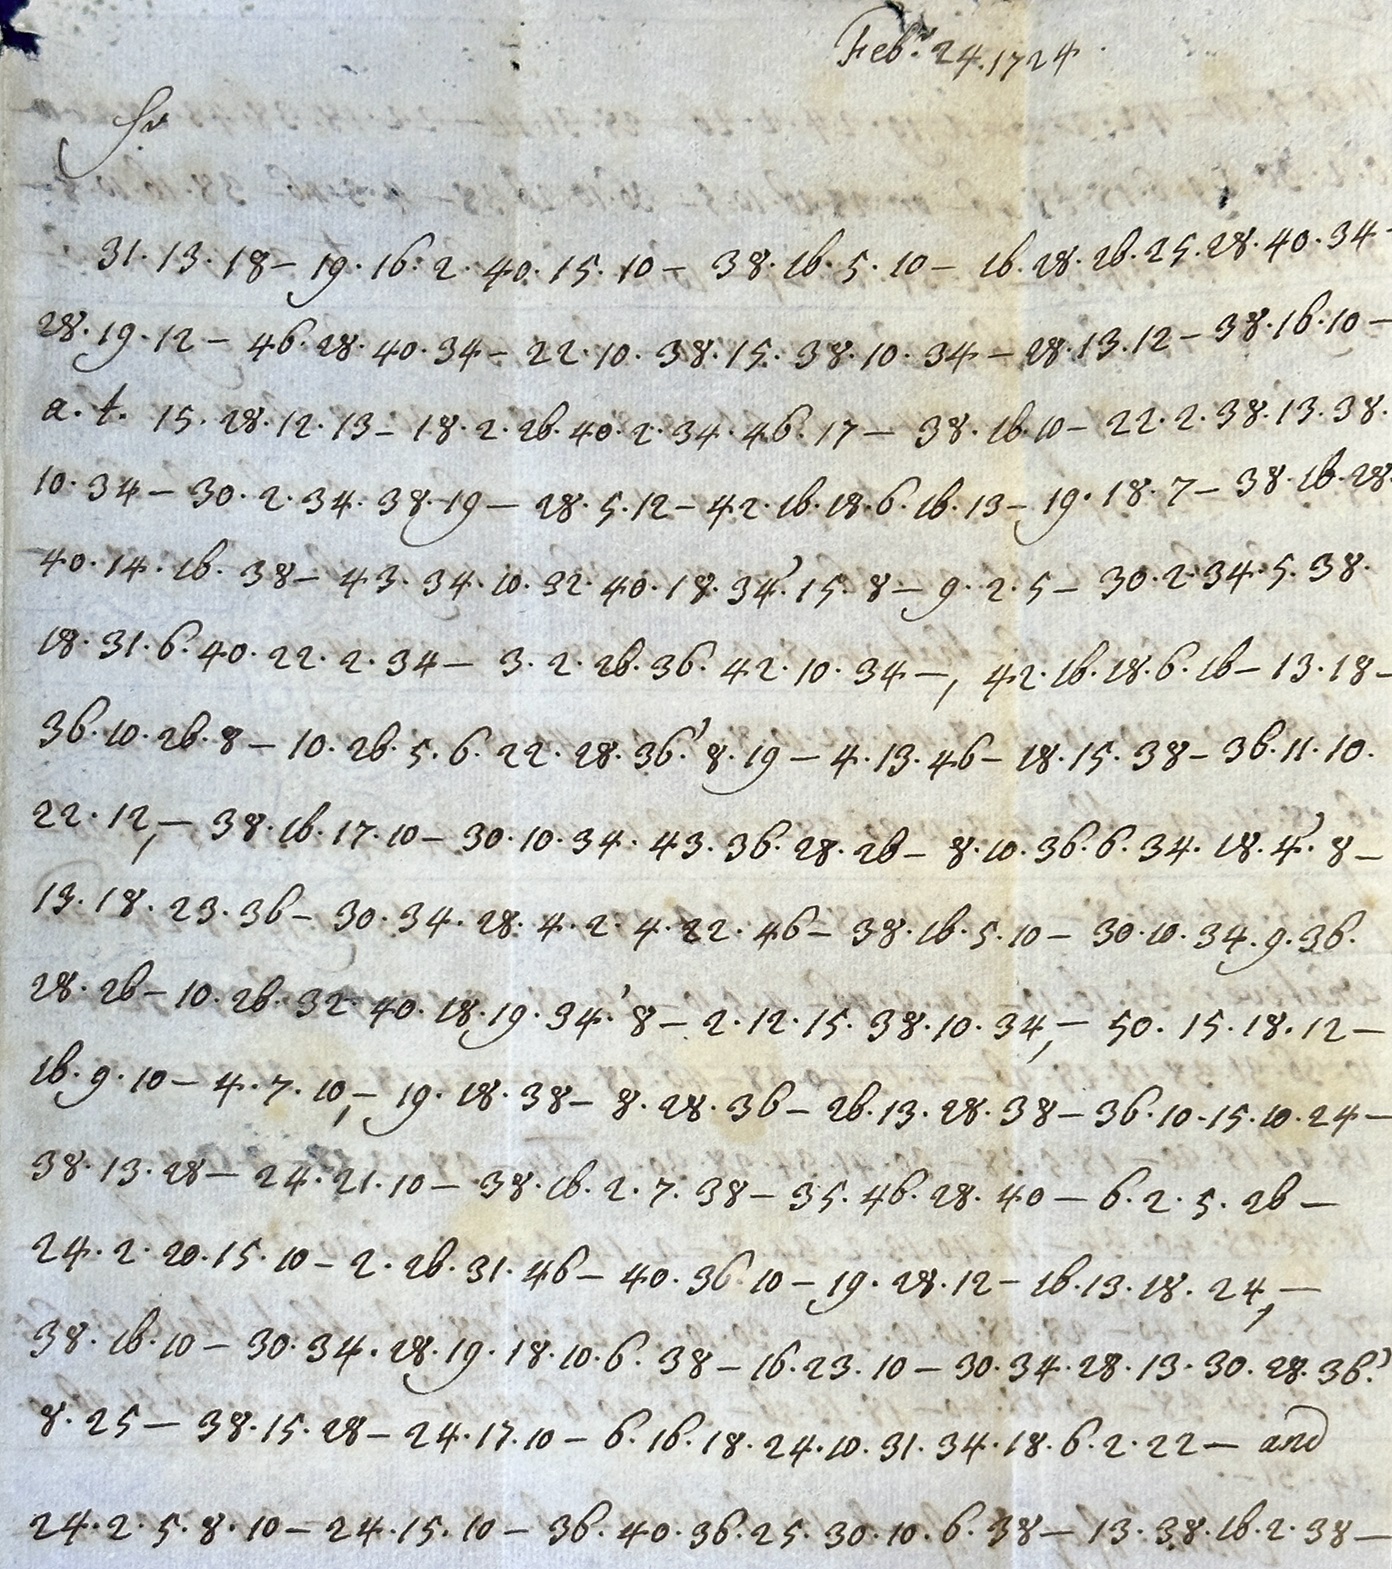 Feb:ry 24. 1724
Sr
31. 13. 18 – 19. 16. 2. 40. 15. 10 – 38. 16. 5. 10 – 16. 28. 26. 25. 28. 40. 34 –
28. 19. 12 – 46. 28. 40. 34 – 22. 10. 38. 15. 38. 10. 34 – 28. 13. 12 – 38. 16. 10 –
a. t. 15. 28. 12. 13 – 18. 2. 26. 40. 2. 34. 46. 17 – 38. 16. 10 – 22. 2. 38. 13. 38.
10. 34 – 30. 2. 34. 38. 19 – 28. 5. 12 – 42. 16. 18. 6. 16. 13 – 19. 18. 7 – 38. 16. 28.
40. 14. 16. 38 – 43. 34. 10. 32. 40. 18. 34.' 15. 8 – 9. 2. 5 – 30. 2. 34. 5. 38.
18. 31. 6. 40. 22. 2. 34 – 3. 2. 26. 36. 42. 10. 34 –, 42. 16. 18. 6. 16 – 13. 18 –
36. 10. 26. 8 – 10. 26. 5. 6. 22. 28. 36.' 8. 19 – 4. 13. 46 – 18. 15. 38 – 36. 11. 10.
22. 12, – 38. 16. 17. 10 – 30. 10. 34. 43. 36. 28. 26 – 8. 10. 36. 6. 34. 18. 4.' 8 –
13. 18. 23. 36 – 30. 34. 28. 4. 2. 4. 22. 46 – 38. 16. 5. 10 – 30. 10. 34. 9. 36.
28. 26 – 10. 26. 32. 40. 18. 19. 34.' 8 – 2. 12. 15. 38. 10. 34, – 50. 15. 18. 12 –
16. 9. 10 – 4. 7. 10, – 19. 18. 38 – 8. 28. 36 – 26. 13. 28. 38 – 36. 10. 15. 10. 24 –
38. 13. 28 – 24. 21. 10 – 38. 16. 2. 7. 38 – 35. 46. 28. 40 – 6. 2. 5. 26 –
24. 2. 20. 15. 10 – 2. 26. 31. 46 – 40. 36. 10 – 19. 28. 12 – 16. 13. 18. 24, –
38. 16. 10 – 30. 34. 28. 19. 18. 10. 6. 38 – 16. 23. 10 – 30. 34. 28. 13. 30. 28. 36.'
8. 25 – 38. 15. 28 – 24. 17. 10 – 6. 16. 18. 24. 10. 31. 34. 18. 6. 2. 22 – and
24. 2. 5. 8. 10 – 24. 15. 10 – 36. 40. 36. 25. 30. 10. 6. 38 – 13. 38. 16. 2. 38 –